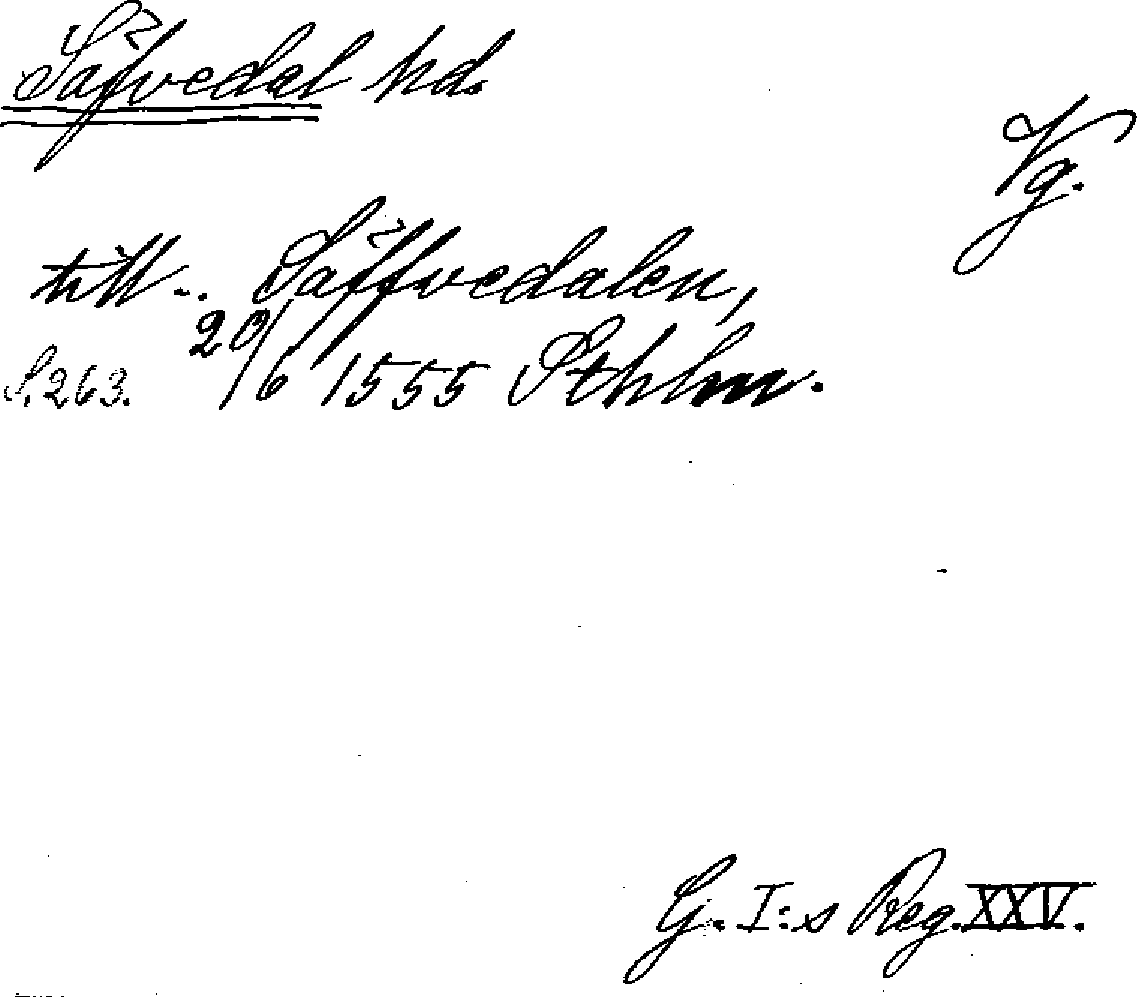 Säfvedal hd.
Vg.
till .. Säffvedalen,
S. 263. 20/6 1555 Sthlm.
G. I:s Reg. XXV.